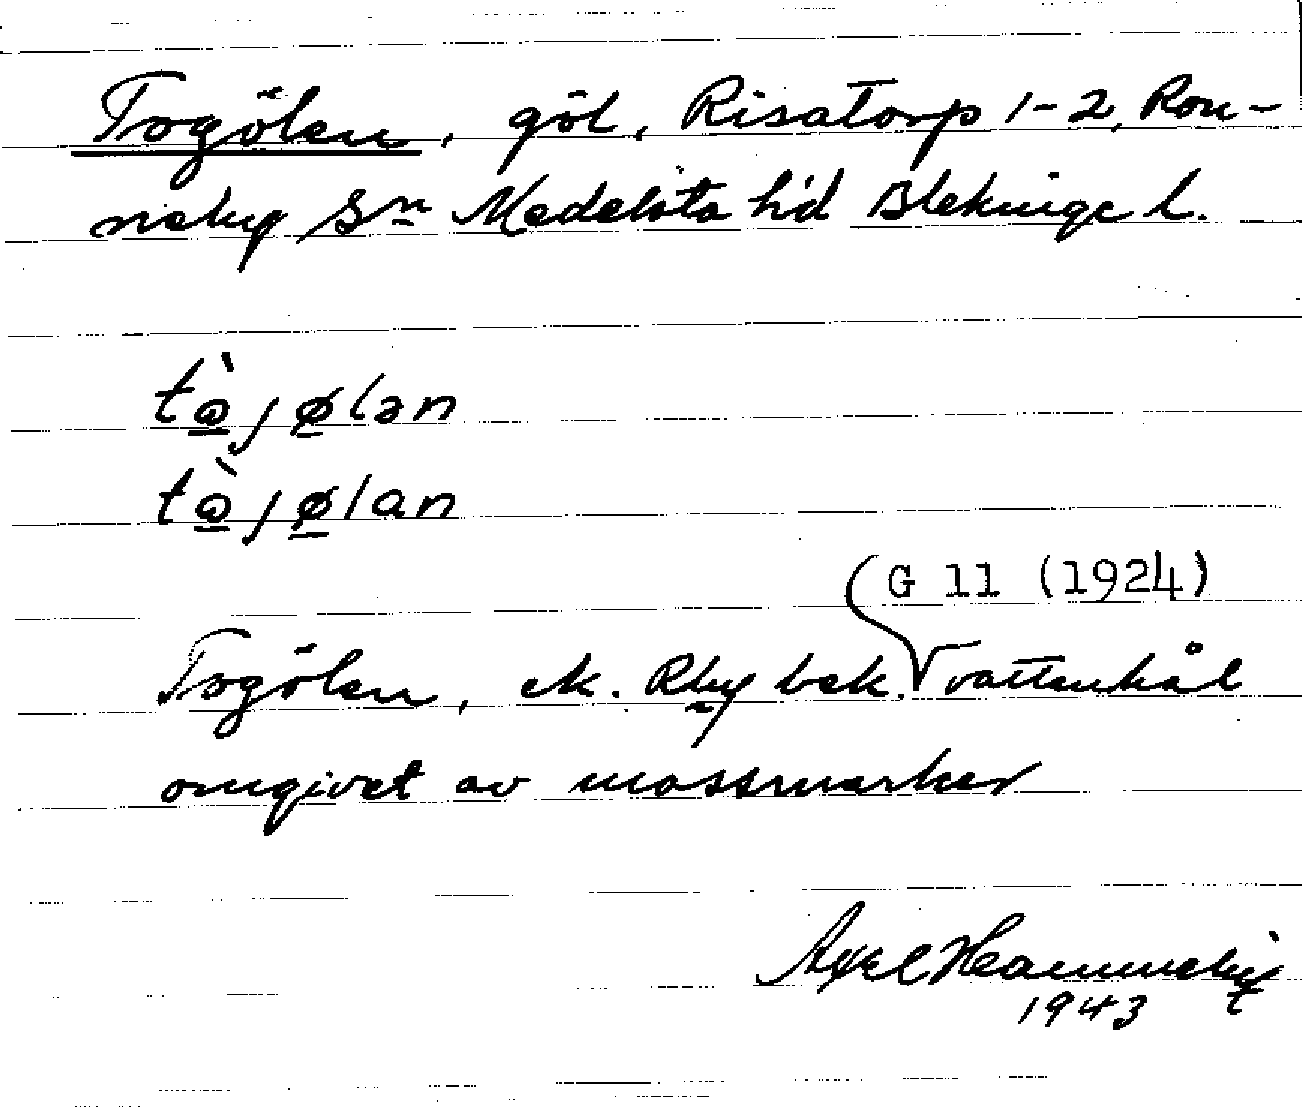 Togölen, göl, Risatorp 1-2, Ron-
neby Sn Medelsta hd Blekinge l.
tɷ̀jølən
tɷ̀jølan
G 11 (1924)
Togölen, ek. Rby bek. vattenhål
omgivet av mossmarker
Axel Hammneby
1943